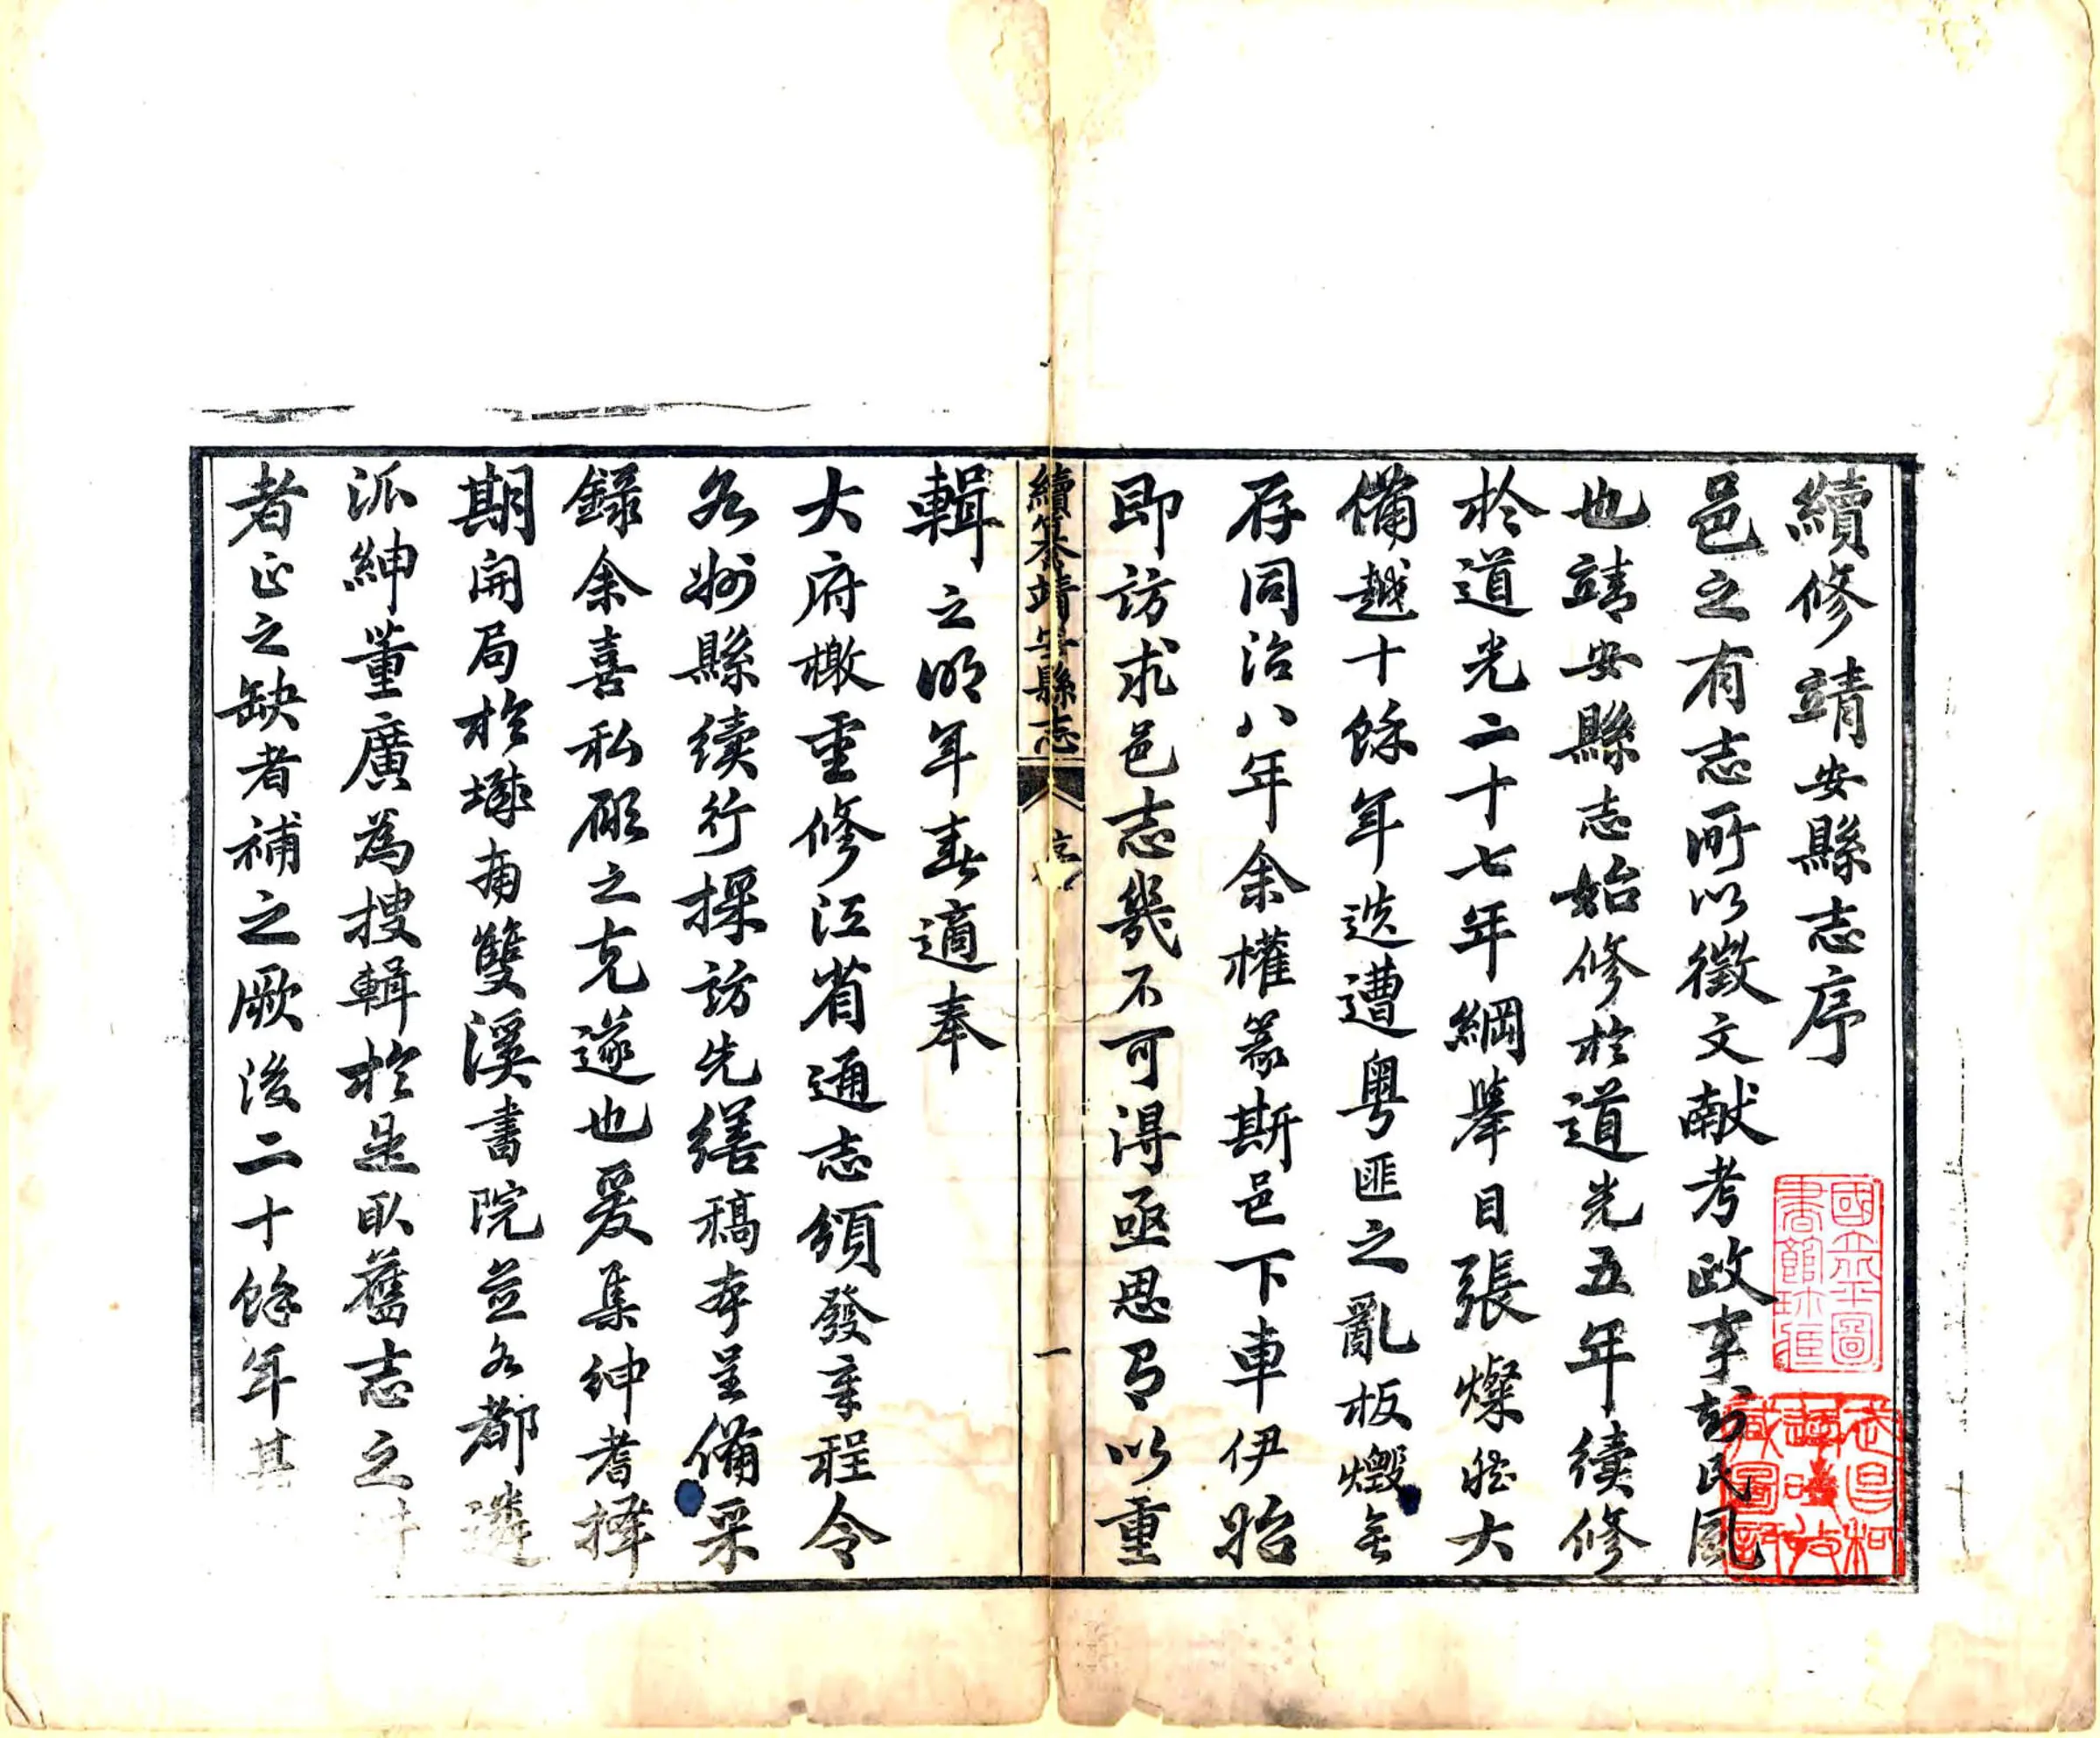 續修靖安縣志序
邑之有志所以徵文献考政事訪民風
也靖安縣志始修於道光五年續修
於道光二十七年綱舉目張燦然大
備越十餘年迭遭粵匪之亂板燬無
存同治八年余權篆斯邑下車伊始
即訪求邑志幾不可得亟思有以重
續纂靖安縣志
序
一
輯之明年春適奉
大府檄重修江省通志頒發章程令
各州縣續行採訪先繕稿本呈備采
錄余喜私願之克遂也爰集紳耆擇
期開局於城南雙溪書院並各都遴
派紳董廣為搜輯於是取舊志之
者正之缺者補之厥後二十餘年其
國立北平圖書館珍藏
武昌柯逢時收藏圖記